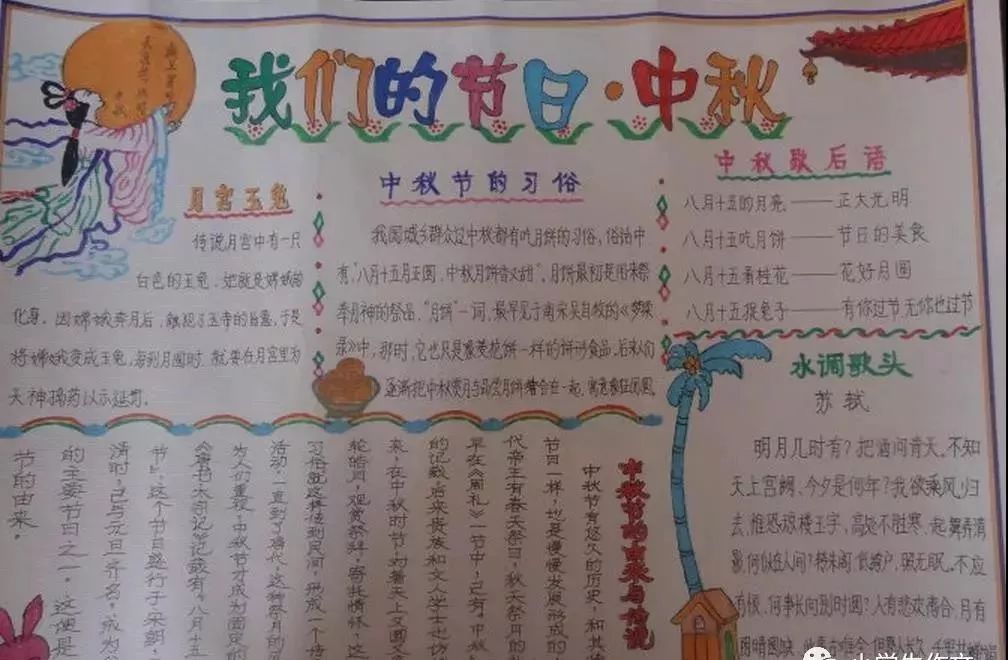 我们的节日·中秋
月宫玉兔
传说月宫中有一只
白色的玉兔，她就是嫦娥的
化身。因嫦娥奔月后，触犯了玉帝的旨意，于是
将嫦娥变成玉兔，每到月圆时，就要在月宫里为
天神捣药以示惩罚。
中秋节的习俗
我国城乡群众过中秋都有吃月饼的习俗，俗话中
有“八月十五月正圆，中秋月饼香又甜”。月饼最初是用来祭
奉月神的祭品，“月饼”一词，最早见于南宋吴自牧的《梦粱
录》中，那时，它也只是像菱花饼一样的饼形食品。后来人们
逐渐把中秋赏月与品尝月饼结合在一起，寓意家人团圆
中秋歇后语
八月十五的月亮——正大光明
八月十五吃月饼——节日的美食
八月十五看桂花——花好月圆
八月十五捉兔子——有你过节无你也过节
水调歌头
苏轼
明月几时有？把酒问青天。不知
天上宫阙，今夕是何年？我欲乘风归
去，惟恐琼楼玉宇，高处不胜寒。起舞弄清
影，何似在人间？转朱阁，低绮户，照无眠。不应
有恨，何事长向别时圆？人有悲欢离合，月有
阴晴圆缺
中秋节的由来与传说
中秋节有悠久的历史，和其
节日一样，也是慢慢发展形成的
代帝王有春天祭日，秋天祭月的
早在《周礼》一书中，已有“中秋
的记载。后来贵族和文人学士也仿
来，在中秋时节，对着天上又圆又
轮皓月，观赏祭拜，寄托情怀，这
习俗就这样传到民间，形成一个传
活动，一直到了唐代，这种祭月的
为人们重视，中秋节才成为固定的
《唐书·太宗记》记载有“八月十五
节”，这个节日盛行于宋朝，
清时，已与元旦齐名，成为
的主要节日之一。这便是
节的由来。
小学生作文